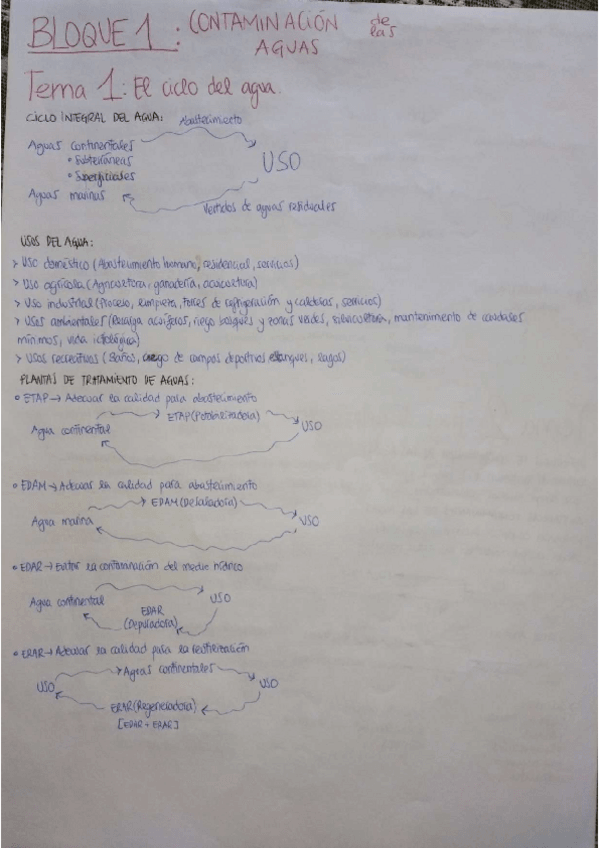 BLOQUE 1: CONTAMINACIÓN de las
AGUAS
Tema 1: El ciclo del agua.
CICLO INTEGRAL DEL AGUA:
Abastecimiento
Aguas continentales
• Subterráneas
• Superficiales
USO
Aguas marinas
Vertidos de aguas residuales
USOS DEL AGUA:
> Uso doméstico (Abastecimiento humano, residencial, servicios)
> Uso agrícola (Agricultura, ganadería, acuicultura)
> Uso industrial (Proceso, limpieza, torres de refrigeración y calderas, servicios)
> Usos ambientales (Recarga acuíferos, riego bosques y zonas verdes, silvicultura, mantenimiento de caudales
mínimos, vida ictiológica)
> Usos recreativos (Baños, riego de campos deportivos estanques, lagos)
PLANTAS DE TRATAMIENTO DE AGUAS:
• ETAP → Adecuar la calidad para abastecimiento
ETAP (Potabilizadora)
Agua continental
USO
• EDAM → Adecuar la calidad para abastecimiento
EDAM (Desaladora)
Agua marina
USO
• EDAR → Evitar la contaminación del medio hídrico
Agua continental
USO
EDAR
(Depuradora)
• ERAR → Adecuar la calidad para la reutilización
Aguas continentales
USO
USO
ERAR (Regeneradora)
[EDAR + ERAR]